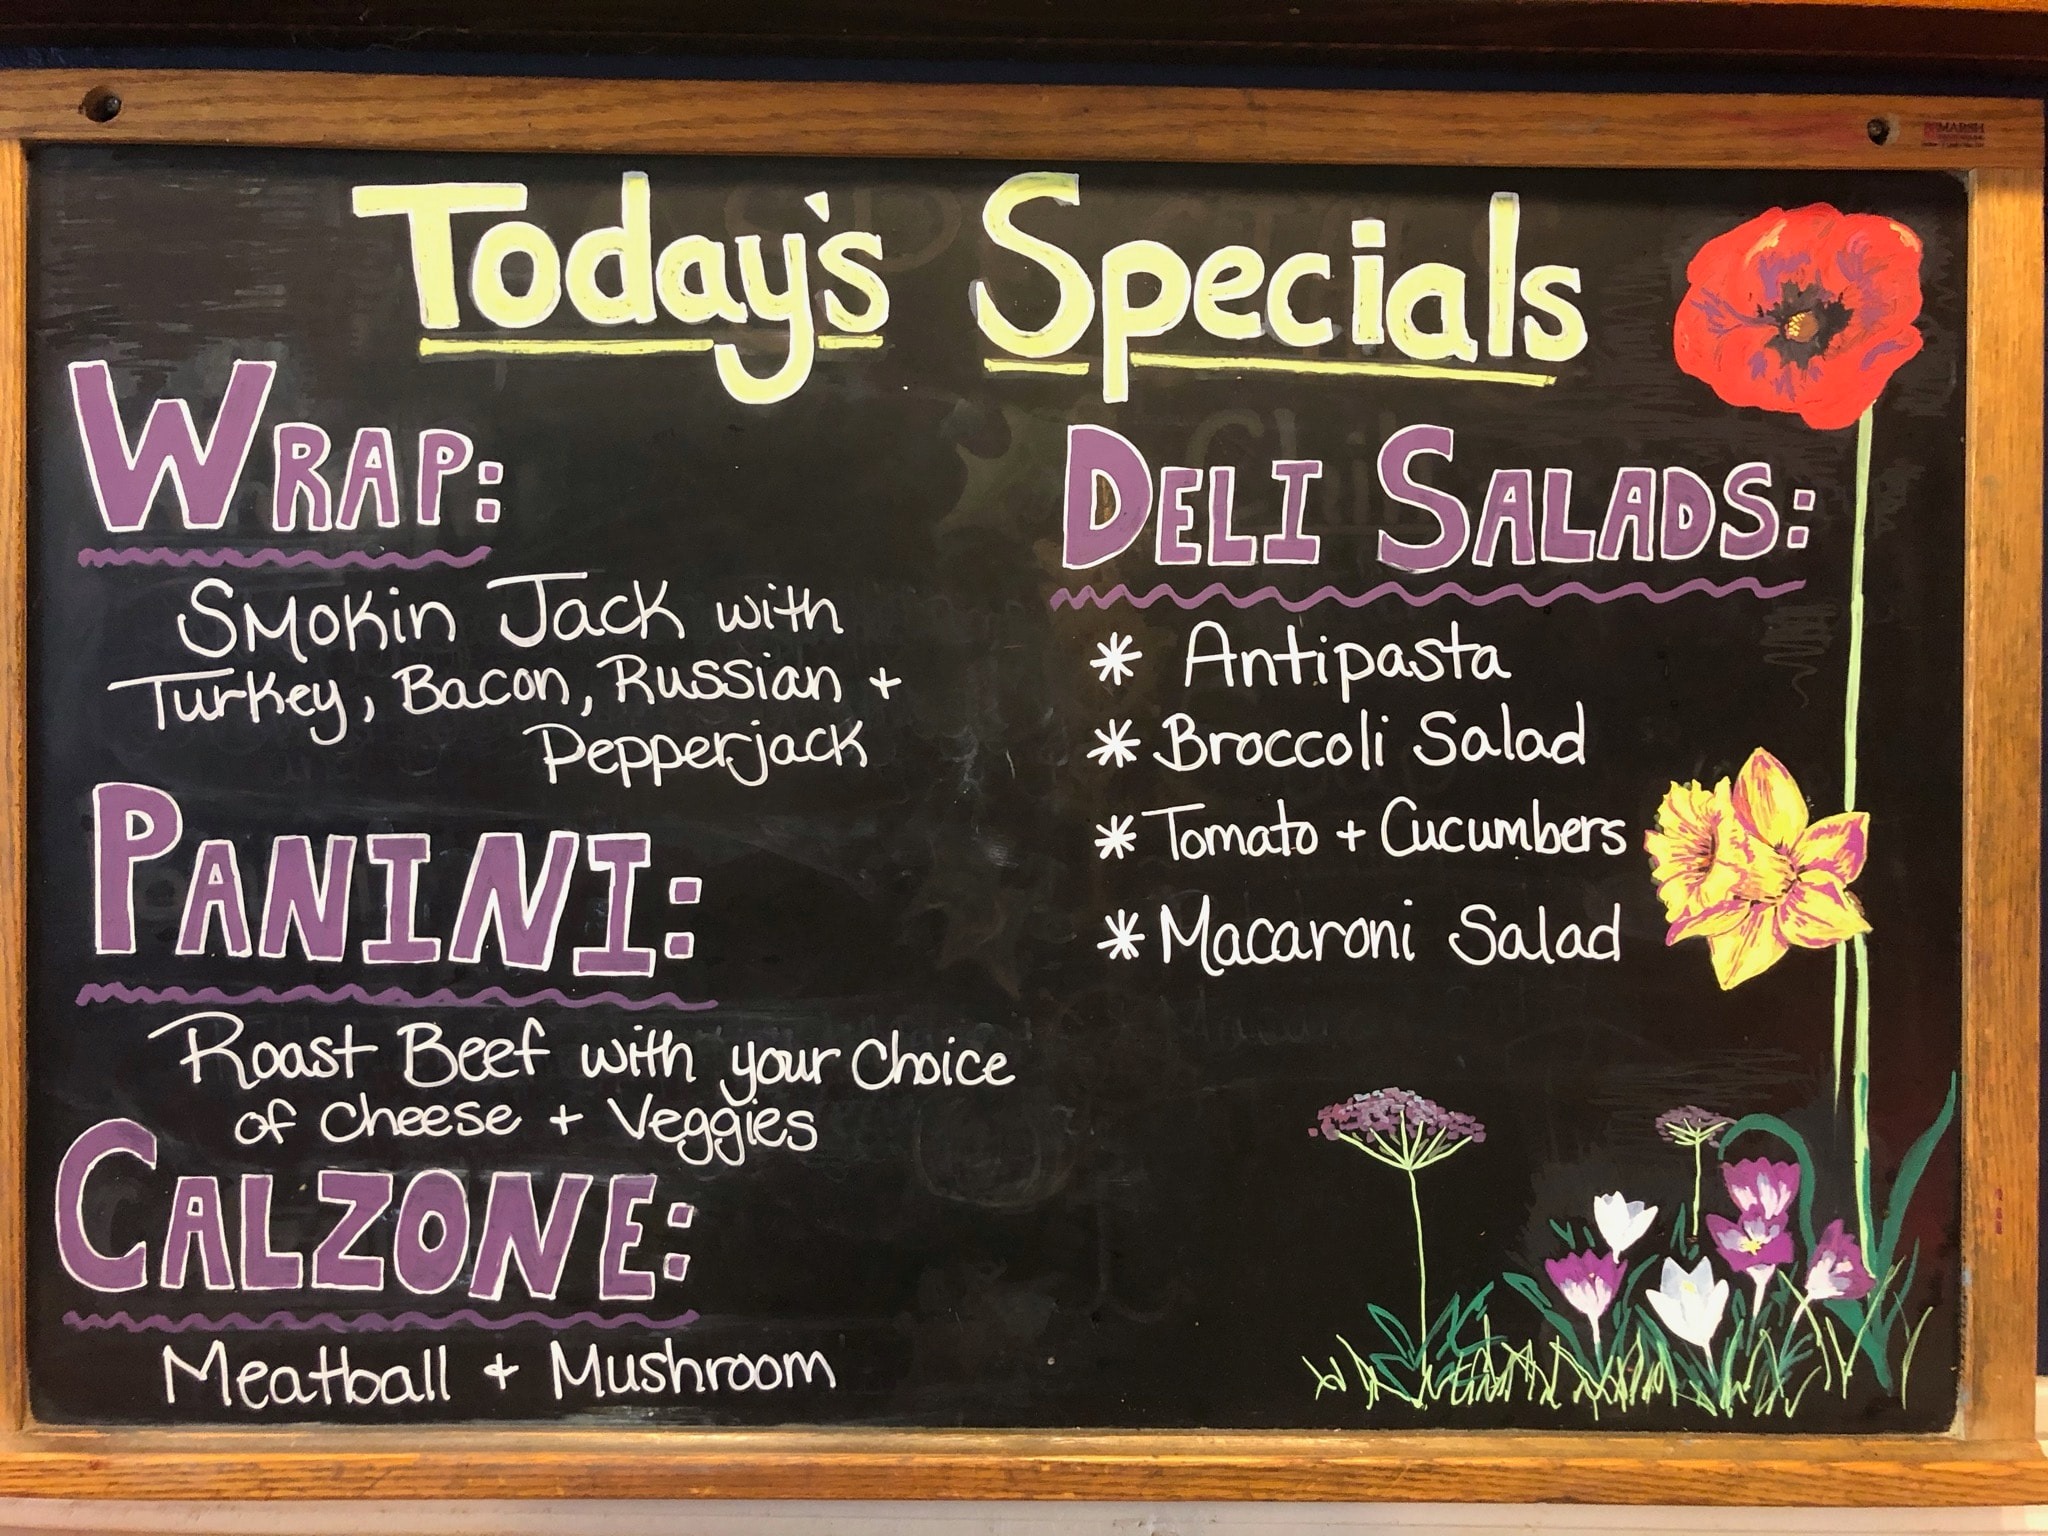 Today's Specials
WRAP:
Smokin Jack with
Turkey, Bacon, Russian +
Pepperjack
PANINI:
Roast Beef with your Choice
of Cheese + Veggies
CALZONE:
Meatball + Mushroom
DELI SALADS:
* Antipasta
* Broccoli Salad
* Tomato + Cucumbers
* Macaroni Salad
MARSH